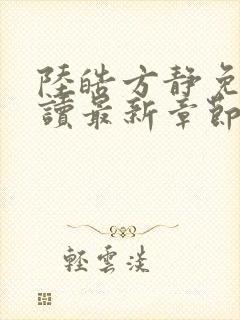 陸皓方靜免
讀最新章節
輕雲淡